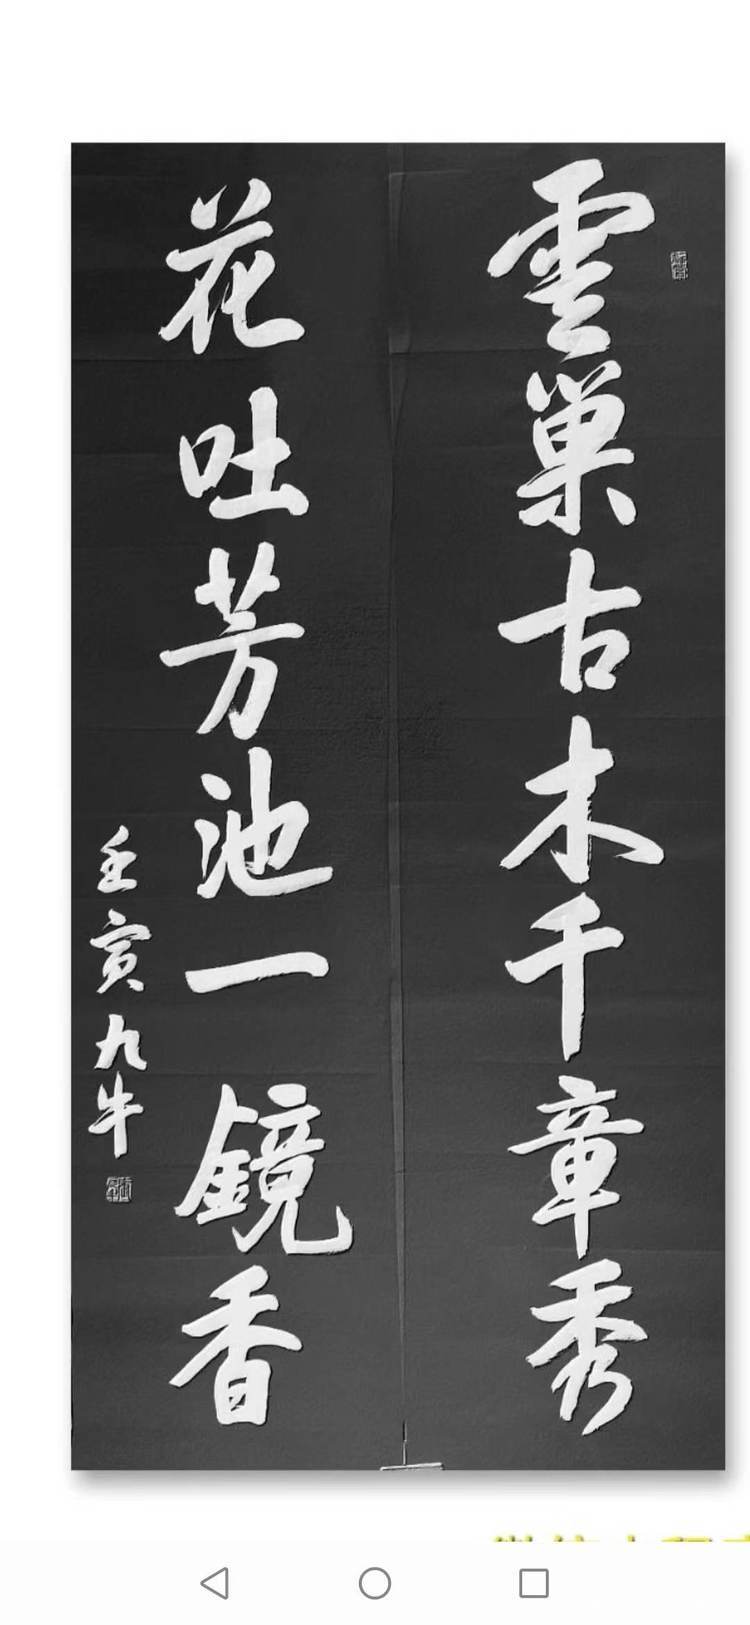 雲巢古木千章秀
花吐芳池一鏡香
壬寅九牛